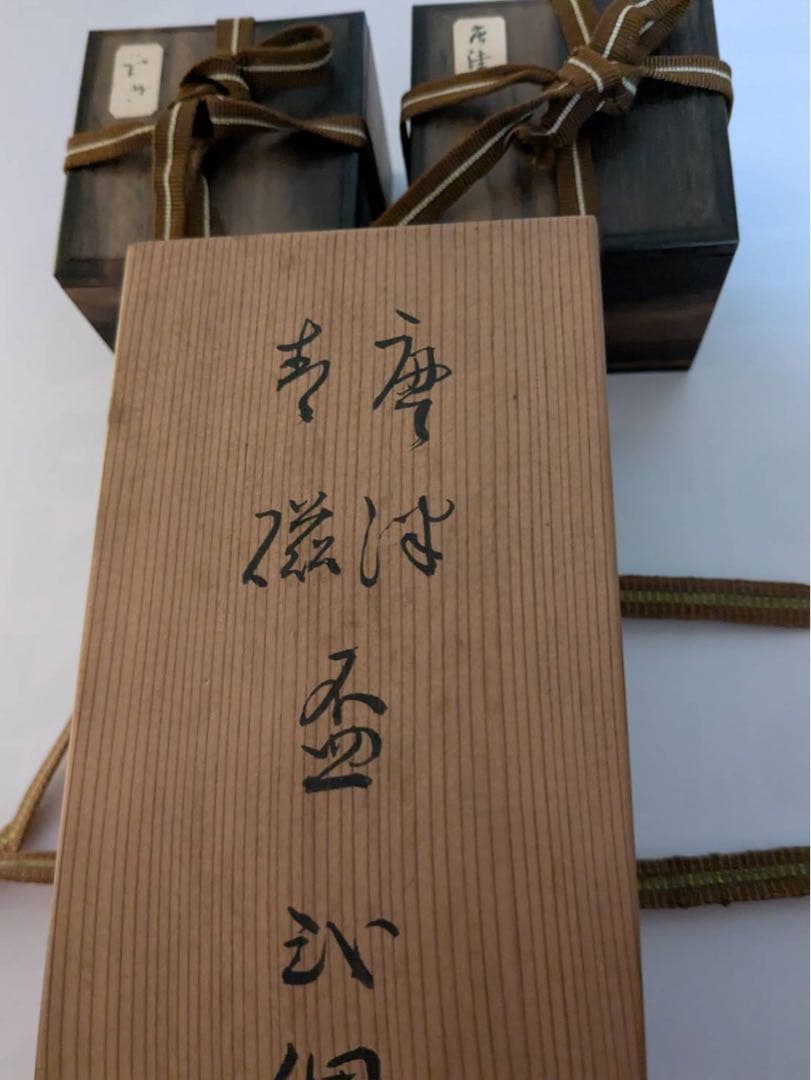 唐津
青磁
盃
弐
個
唐津